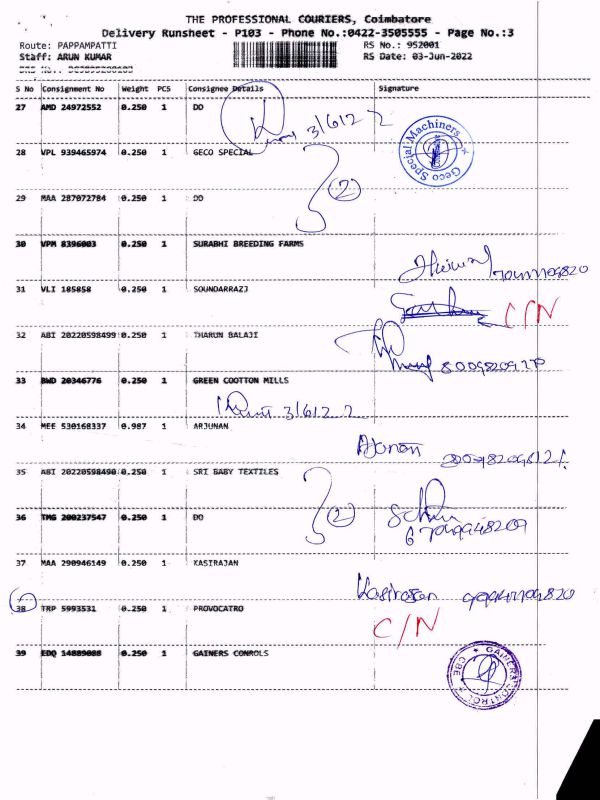 THE PROFESSIONAL COURIERS, Coimbatore
Delivery Runsheet - P103 - Phone No.:0422-3505555 - Page No.:3
Route: PAPPAMPATTI RS No.: 952001
Staff: ARUN KUMAR RS Date: 03-Jun-2022
S No Consignment No Weight PCS Consignee Details Signature
27 AMD 24972552 0.250 1 DD
3/6/22
28 VPL 939465974 0.250 1 GECO SPECIAL
Geco Special Machiners
2
29 MAA 287072784 0.250 1 DD
30 VPM 8396003 0.250 1 SURABHI BREEDING FARMS
31 VLI 185858 0.250 1 SOUNDARRAZJ
C/N
32 ABI 20220598499 0.250 1 THARUN BALAJI
33 BWD 20346776 0.250 1 GREEN COOTTON MILLS
3/6/22
34 MEE 530168337 0.987 1 ARJUNAN
35 ABI 20220598490 0.250 1 SRI BABY TEXTILES
2
36 TMG 200237547 0.250 1 DD
37 MAA 290946149 0.250 1 KASIRAJAN
Kasirajan
38 TRP 5993531 0.250 1 PROVOCATRO
C/N
39 EDQ 14889088 0.250 1 GAINERS CONROLS
GAINERS CONTROL
CBE